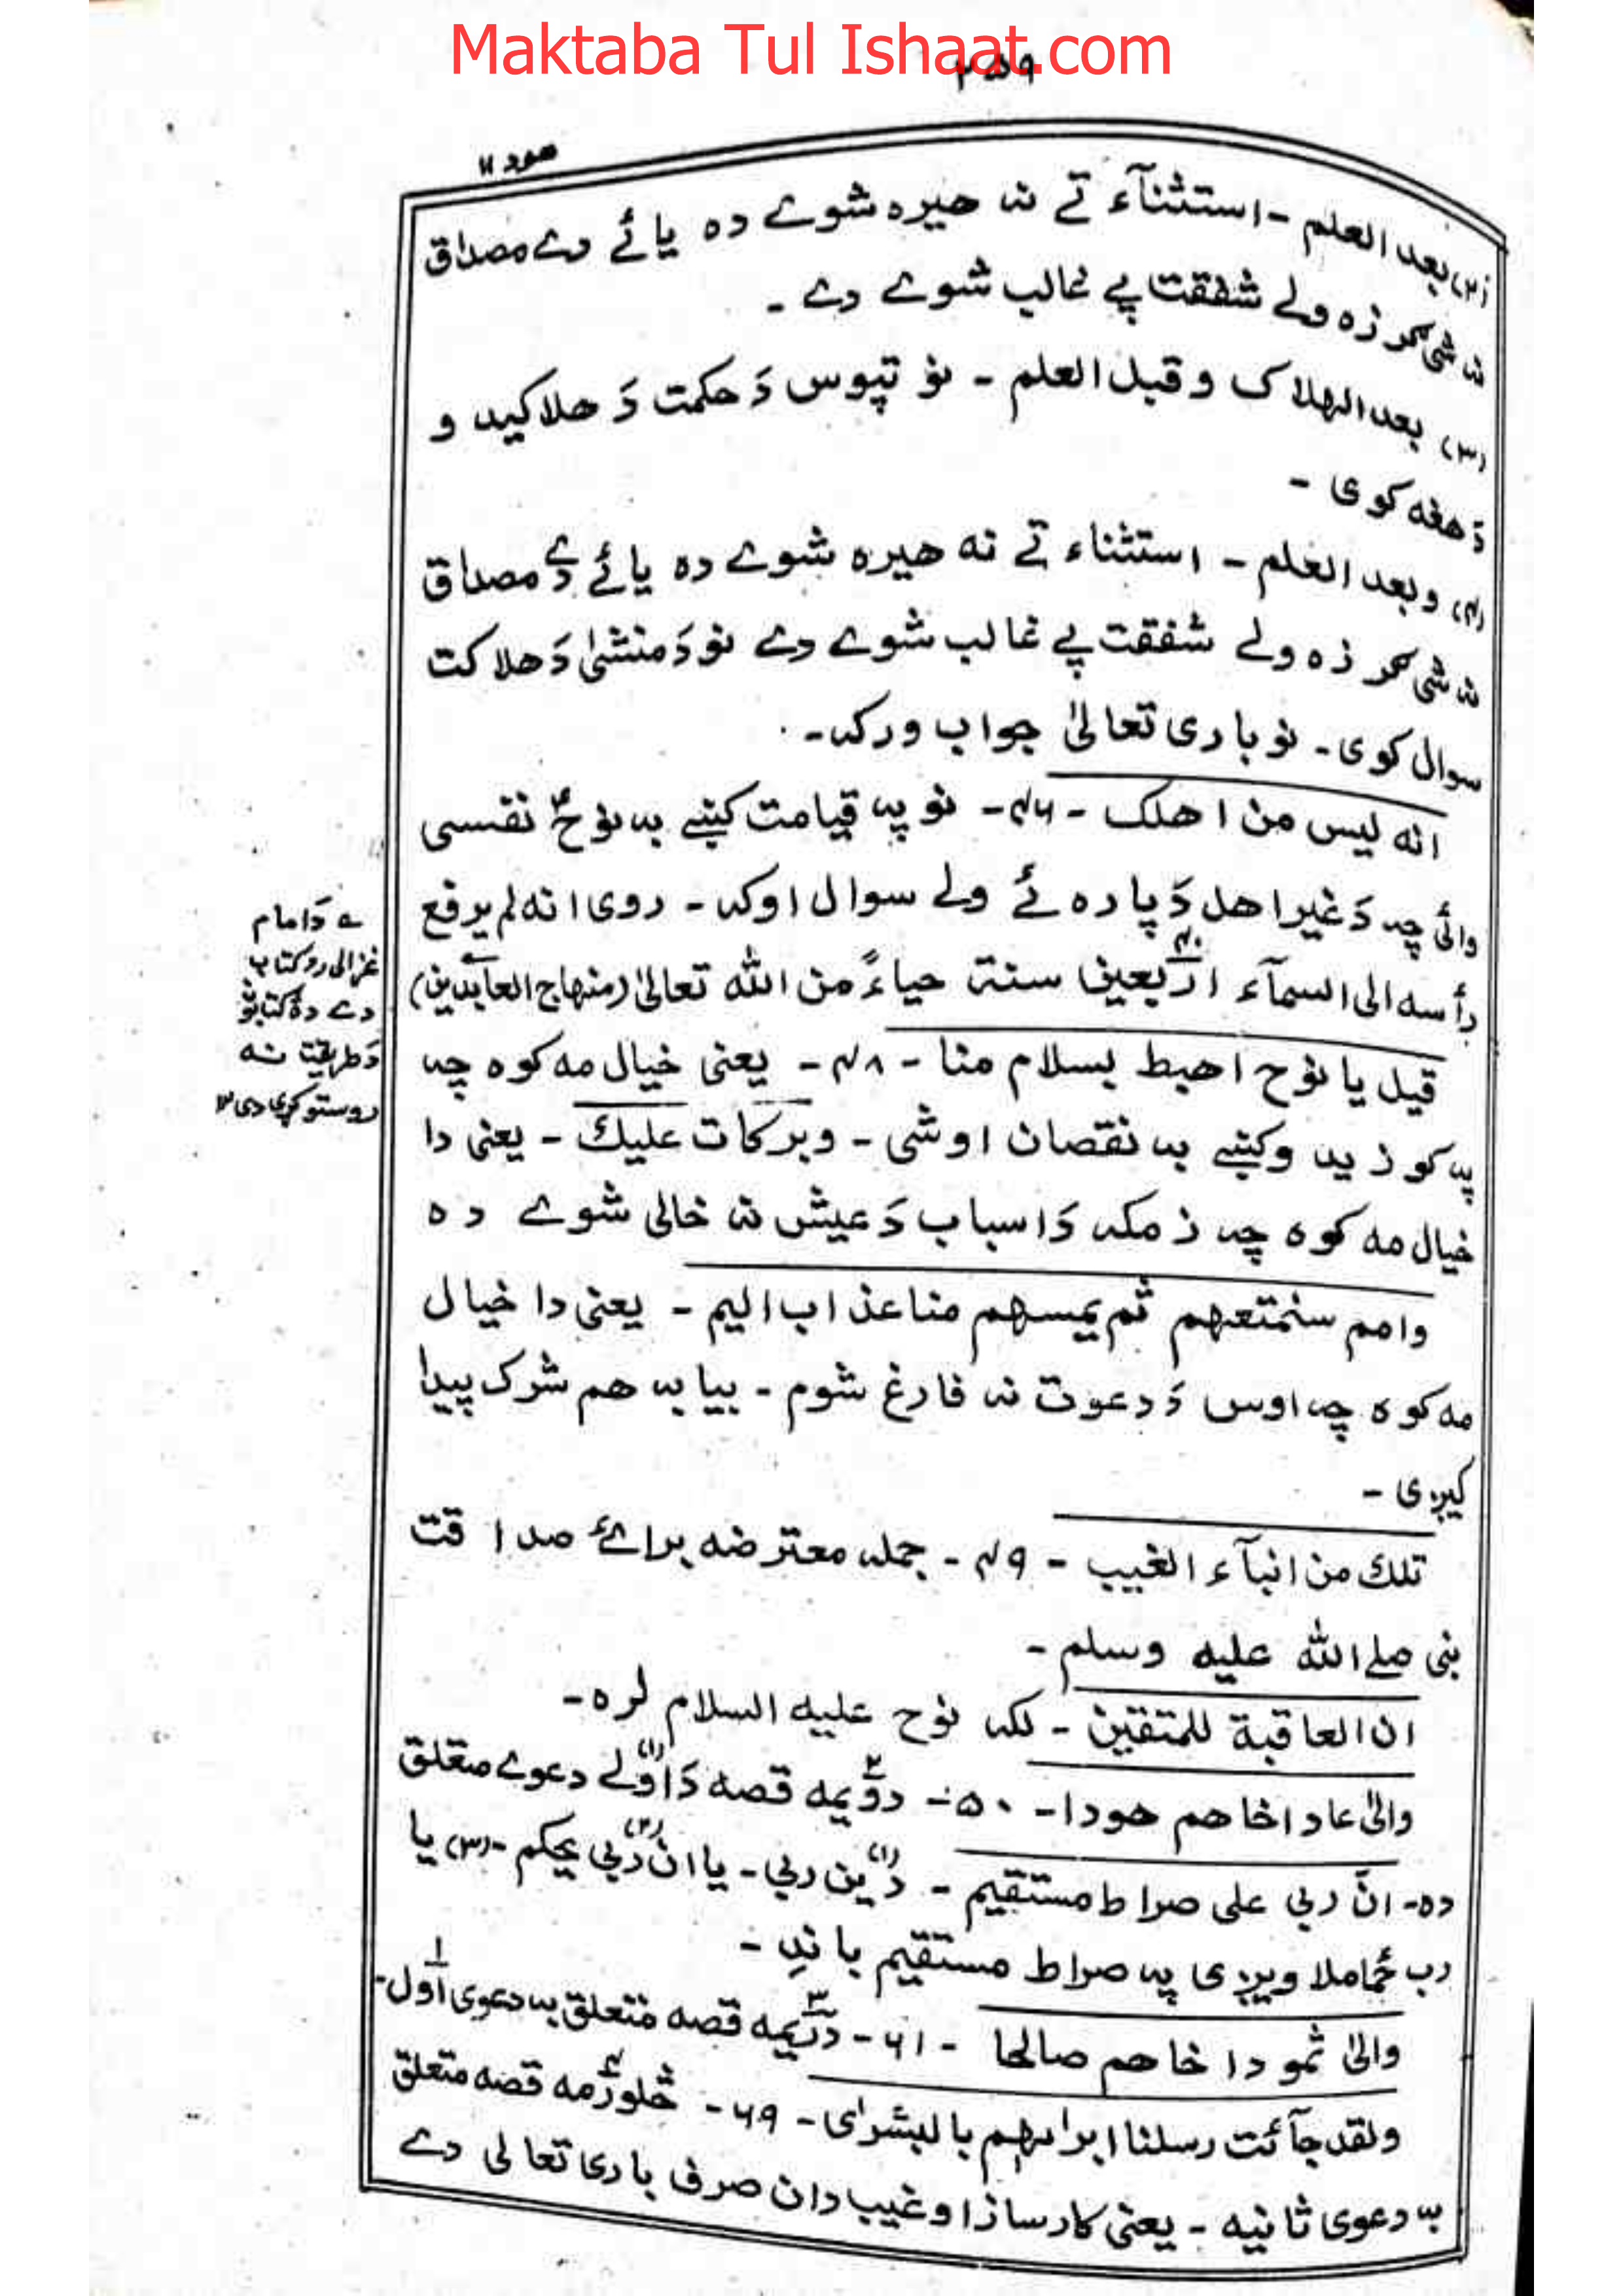 Maktaba Tul Ishaat.com
۲۵۹
هود ۱۱
(۲) بعد العلم - استثنآء تے نہ هیره شوے ده یائے دے مصداق
نہ شی گر زه ولے شفقت پے غالب شوے دے -
(۳) بعد الهلاک و قبل العلم - نو تپوس دَ حکمت دَ هلاکید و
دَ هغه کوی -
(۴) و بعد العلم - استثناء تے نه هیره شوے ده یائے دے مصداق
نہ شی گر زه ولے شفقت پے غالب شوے دے نو دَ منشیٰ دَ هلاکت
سوال کوی - نو باری تعالیٰ جواب ورکہ -
انه لیس من اهلک - ۴۶ - نو پہ قیامت کنبے بہ نوحؑ نفسی
وائی چہ دَ غیر اهل دَ پاره ئے ولے سوال اوکہ - روی انه لم یرفع
رأسه الی السمآء اربعین سنة حیاءً من الله تعالیٰ (منهاج العابدین)
قیل یا نوح اهبط بسلام منا - ۴۸ - یعنی خیال مه کوه چہ
پہ کوزید وکنبے بہ نقصان اوشی - وبرکات علیك - یعنی دا
خیال مه کوه چہ زمکہ دَ اسباب دَ عیش نہ خالی شوے ده
وامم سنمتعهم ثم یمسهم منا عذاب الیم - یعنی دا خیال
مه کوه چہ اوس دَ دعوت نہ فارغ شوم - بیا بہ هم شرک پیدا
کیږی -
تلك من انبآء الغیب - ۴۹ - جملہ معترضه برائے صداقت
نبی صلے الله علیه وسلم -
ان العاقبة للمتقین - لکہ نوح علیه السلام لره -
والیٰ عاد اخاهم هودا - ۵۰ - دوّیمه قصه دَ اوّلے دعوے متعلق
ده - انّ ربی علی صراط مستقیم - (۱) دین ربي - یا (۲) ان ربي یحکم - (۳) یا
رب ځما ملاویږی پہ صراط مستقیم باندِ -
والیٰ ثمود اخاهم صالحا - ۶۱ - دریمه قصه متعلق بہ دعوی اول -
ولقد جآئت رسلنا ابراهیم بالبشرٰی - ۶۹ - څلورمه قصه متعلق
بہ دعوی ثانیه - یعنی کارساز او غیب دان صرف باری تعالی دے
ے دَ امام
غزالی رح کتاب
دے دۀ کتابو
دَ طریقت نہ
روستو کړی دی ۱۲